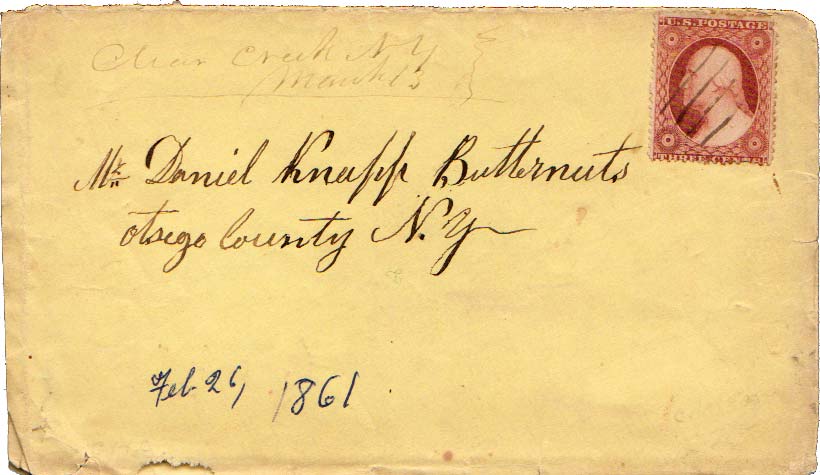 Clear Creek N.Y
March 13
U.S. POSTAGE
THREE CENTS
Mr Daniel Knapp Butternuts
otsego County N.Y
Feb 26, 1861